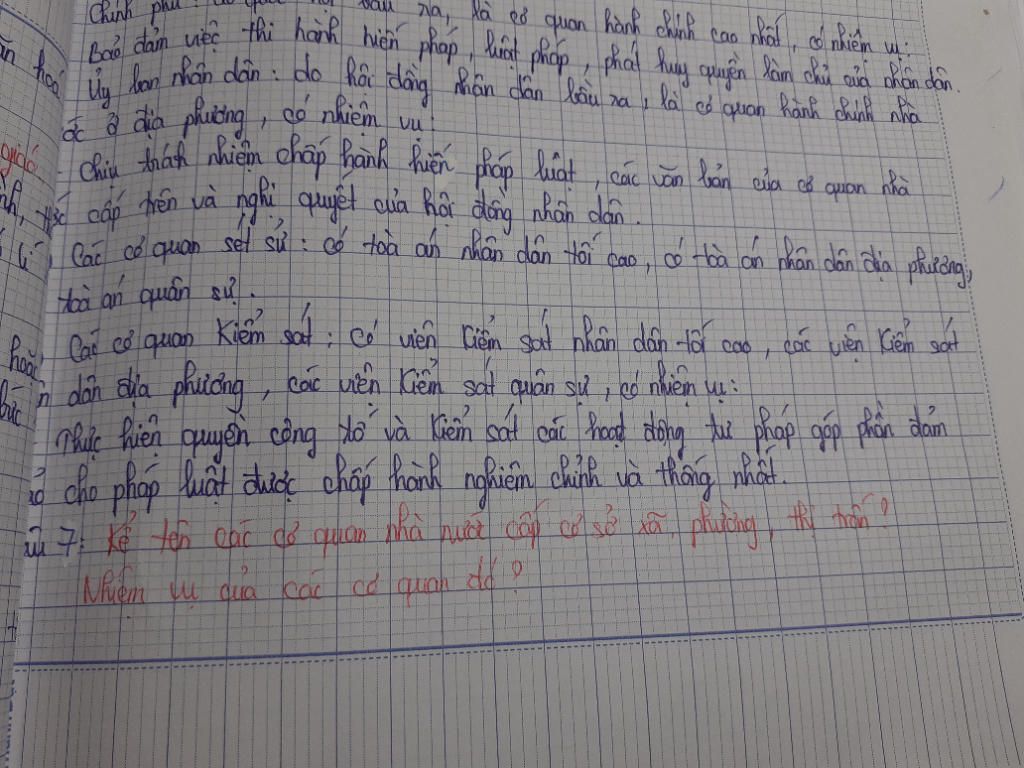 Chính phủ: ra, là cơ quan hành chính cao nhất, có nhiệm vụ:
Bảo đảm việc thi hành hiến pháp, luật pháp, phát huy quyền làm chủ của nhân dân.
Ủy ban nhân dân: do hội đồng nhân dân bầu ra, là cơ quan hành chính nhà
ớc ở địa phương, có nhiệm vụ:
- Chịu trách nhiệm chấp hành hiến pháp luật, các văn bản của cơ quan nhà
cấp trên và nghị quyết của hội đồng nhân dân.
Các cơ quan sét sử: có toà án nhân dân tối cao, có toà án nhân dân địa phương,
toà án quân sự.
Các cơ quan Kiểm sát: có viên Kiểm sát nhân dân tối cao, các viên Kiểm sát
n dân địa phương, các viên Kiểm sát quân sự, có nhiệm vụ:
Thực hiện quyền công tố và Kiểm sát các hoạt động tư pháp góp phần đảm
cho pháp luật được chấp hành nghiêm chỉnh và thống nhất.
7: Kể tên các cơ quan nhà nước cấp cơ sở xã, phường, thị trấn?
Nhiệm vụ của các cơ quan đó?